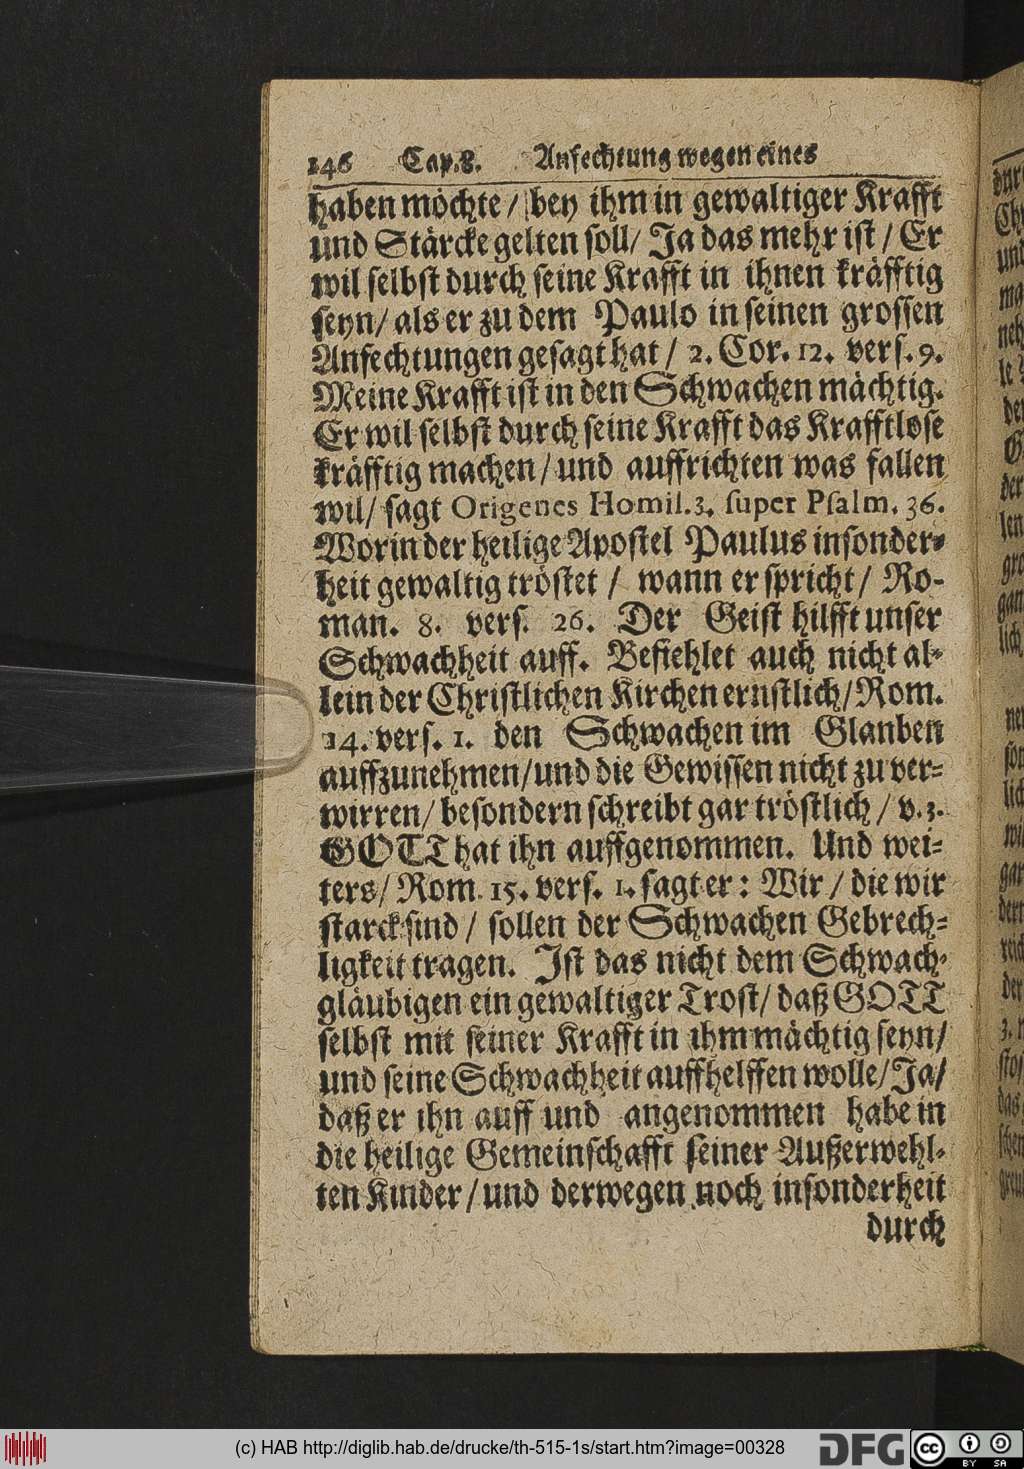 146 Cap. 8. Anfechtung wegen eines
haben möchte / bey ihm in gewaltiger Krafft
und Stärcke gelten soll/ Ja das mehr ist / Er
wil selbst durch seine Krafft in ihnen kräfftig
seyn/ als er zu dem Paulo in seinen grossen
Anfechtungen gesagt hat / 2. Cor. 12. vers. 9.
Meine Krafft ist in den Schwachen mächtig.
Er wil selbst durch seine Krafft das Krafftlose
kräfftig machen / und auffrichten was fallen
wil/ sagt Origenes Homil. 3. super Psalm. 36.
Worin der heilige Apostel Paulus insonder-
heit gewaltig tröstet / wann er spricht / Ro-
man. 8. vers. 26. Der Geist hilfft unser
Schwachheit auff. Befiehlet auch nicht al-
lein der Christlichen Kirchen ernstlich/ Rom.
14. vers. 1. den Schwachen im Glauben
auffzunehmen/ und die Gewissen nicht zu ver-
wirren/ besondern schreibt gar tröstlich / v. 3.
GOTT hat ihn auffgenommen. Und wei-
ters/ Rom. 15. vers. 1. sagt er: Wir / die wir
starck sind / sollen der Schwachen Gebrech-
ligkeit tragen. Ist das nicht dem Schwach-
gläubigen ein gewaltiger Trost/ daß GOTT
selbst mit seiner Krafft in ihm mächtig seyn/
und seine Schwachheit auffhelffen wolle/ Ja/
daß er ihn auff und angenommen habe in
die heilige Gemeinschafft seiner Außerwehl-
ten Kinder / und derwegen noch insonderheit
durch
(c) HAB http://diglib.hab.de/drucke/th-515-1s/start.htm?image=00328
DFG cc BY SA